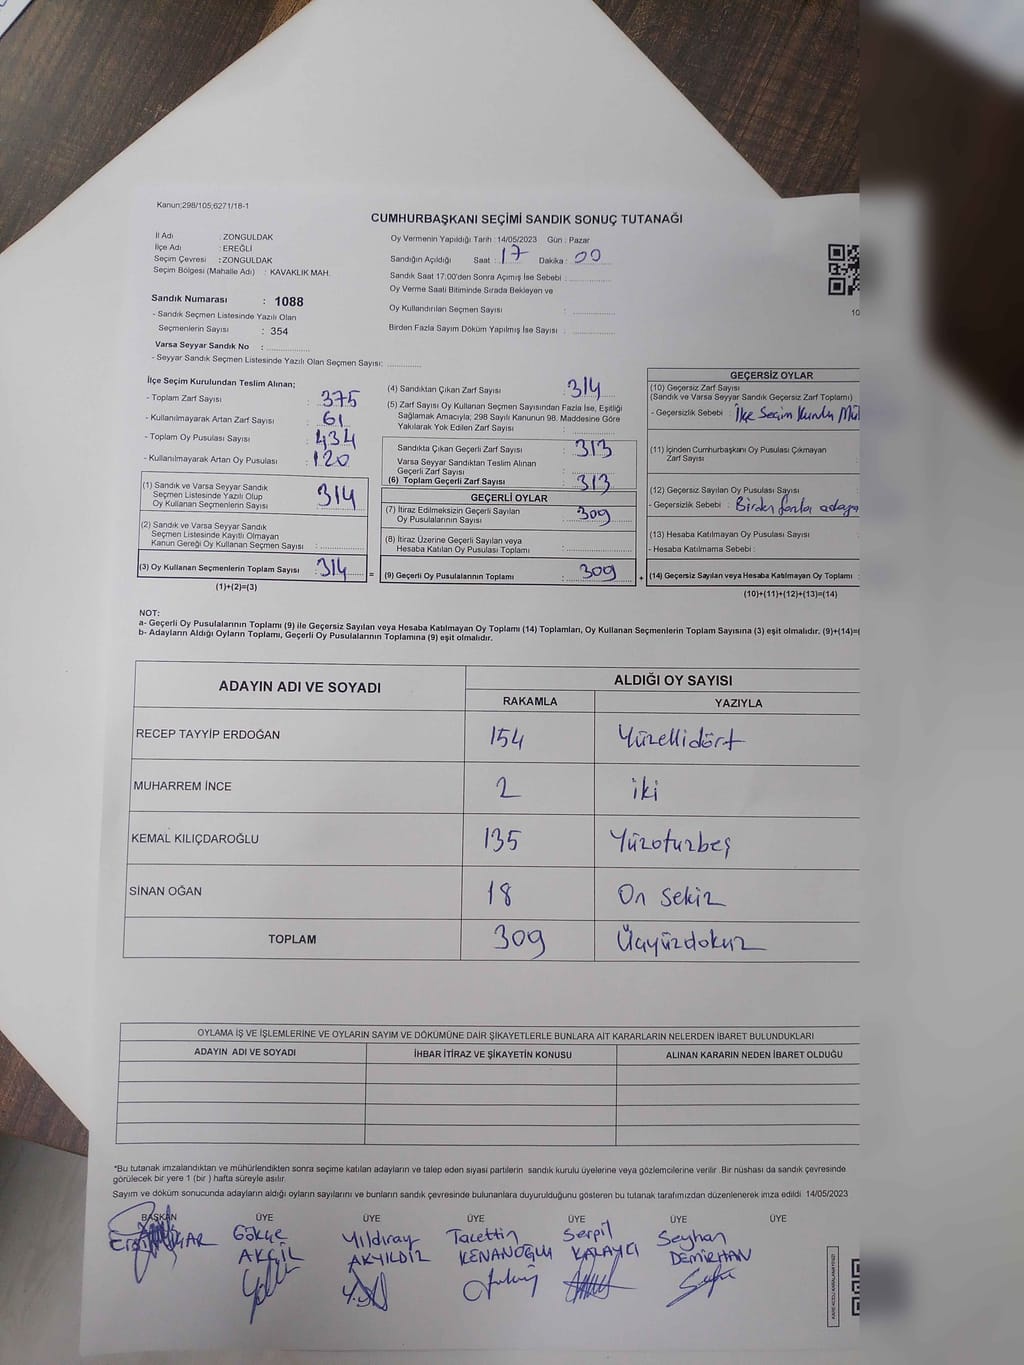 Kanun;298/105;6271/18-1
CUMHURBAŞKANI SEÇİMİ SANDIK SONUÇ TUTANAĞI
İl Adı : ZONGULDAK
İlçe Adı : EREĞLİ
Seçim Çevresi : ZONGULDAK
Seçim Bölgesi (Mahalle Adı) : KAVAKLIK MAH.
Sandık Numarası : 1088
- Sandık Seçmen Listesinde Yazılı Olan
Seçmenlerin Sayısı : 354
Varsa Seyyar Sandık No : ..............
- Seyyar Sandık Seçmen Listesinde Yazılı Olan Seçmen Sayısı: ..............
Oy Vermenin Yapıldığı Tarih :14/05/2023 Gün : Pazar
Sandığın Açıldığı Saat : 17 Dakika : 00
Sandık Saat 17:00'den Sonra Açımış İse Sebebi : ..............
Oy Verme Saati Bitiminde Sırada Bekleyen ve
Oy Kullandırılan Seçmen Sayısı : ..............
Birden Fazla Sayım Döküm Yapılmış İse Sayısı : ..............
10
İlçe Seçim Kurulundan Teslim Alınan;
- Toplam Zarf Sayısı : 375
- Kullanılmayarak Artan Zarf Sayısı : 61
- Toplam Oy Pusulası Sayısı : 434
- Kullanılmayarak Artan Oy Pusulası : 120
(1) Sandık ve Varsa Seyyar Sandık
Seçmen Listesinde Yazılı Olup
Oy Kullanan Seçmenlerin Sayısı : 314
(2) Sandık ve Varsa Seyyar Sandık
Seçmen Listesinde Kayıtlı Olmayan
Kanun Gereği Oy Kullanan Seçmen Sayısı : ..............
(3) Oy Kullanan Seçmenlerin Toplam Sayısı : 314 =
(1)+(2)=(3)
(4) Sandıktan Çıkan Zarf Sayısı : 314
(5) Zarf Sayısı Oy Kullanan Seçmen Sayısından Fazla İse, Eşitliği
Sağlamak Amacıyla; 298 Sayılı Kanunun 98. Maddesine Göre
Yakılarak Yok Edilen Zarf Sayısı : ..............
Sandıkta Çıkan Geçerli Zarf Sayısı : 313
Varsa Seyyar Sandıktan Teslim Alınan
Geçerli Zarf Sayısı : ..............
(6) Toplam Geçerli Zarf Sayısı : 313
GEÇERLİ OYLAR
(7) İtiraz Edilmeksizin Geçerli Sayılan
Oy Pusulalarının Sayısı : 309
(8) İtiraz Üzerine Geçerli Sayılan veya
Hesaba Katılan Oy Pusulası Toplamı : ..............
(9) Geçerli Oy Pusulalarının Toplamı : 309 +
GEÇERSİZ OYLAR
(10) Geçersiz Zarf Sayısı
(Sandık ve Varsa Seyyar Sandık Geçersiz Zarf Toplamı)
- Geçersizlik Sebebi : İlçe Seçim Kurulu Mü
(11) İçinden Cumhurbaşkanı Oy Pusulası Çıkmayan
Zarf Sayısı :
(12) Geçersiz Sayılan Oy Pusulası Sayısı
- Geçersizlik Sebebi : Birden fazla adaya
(13) Hesaba Katılmayan Oy Pusulası Sayısı :
- Hesaba Katılmama Sebebi :
(14) Geçersiz Sayılan veya Hesaba Katılmayan Oy Toplamı :
(10)+(11)+(12)+(13)=(14)
NOT:
a- Geçerli Oy Pusulalarının Toplamı (9) ile Geçersiz Sayılan veya Hesaba Katılmayan Oy Toplamı (14) Toplamları, Oy Kullanan Seçmenlerin Toplam Sayısına (3) eşit olmalıdır. (9)+(14)=(
b- Adayların Aldığı Oyların Toplamı, Geçerli Oy Pusulalarının Toplamına (9) eşit olmalıdır.
ADAYIN ADI VE SOYADI ALDIĞI OY SAYISI
RAKAMLA YAZIYLA
RECEP TAYYİP ERDOĞAN 154 Yüzellidört
MUHARREM İNCE 2 iki
KEMAL KILIÇDAROĞLU 135 Yüzotuzbeş
SİNAN OĞAN 18 On sekiz
TOPLAM 309 Üçyüzdokuz
OYLAMA İŞ VE İŞLEMLERİNE VE OYLARIN SAYIM VE DÖKÜMÜNE DAİR ŞİKAYETLERLE BUNLARA AİT KARARLARIN NELERDEN İBARET BULUNDUKLARI
ADAYIN ADI VE SOYADI İHBAR İTİRAZ VE ŞİKAYETİN KONUSU ALINAN KARARIN NEDEN İBARET OLDUĞU
*Bu tutanak imzalandıktan ve mühürlendikten sonra seçime katılan adayların ve talep eden siyasi partilerin sandık kurulu üyelerine veya gözlemcilerine verilir .Bir nüshası da sandık çevresinde
görülecek bir yere 1 (bir ) hafta süreyle asılır.
Sayım ve döküm sonucunda adayların aldığı oyların sayılarını ve bunların sandık çevresinde bulunanlara duyurulduğunu gösteren bu tutanak tarafımızdan düzenlenerek imza edildi 14/05/2023
BAŞKAN ÜYE ÜYE ÜYE ÜYE ÜYE ÜYE
Gökçe Yıldıray Tacettin Serpil Seyhan
AKGİL AKYILDIZ KENANOĞLU KALAYCI DEMİRHAN